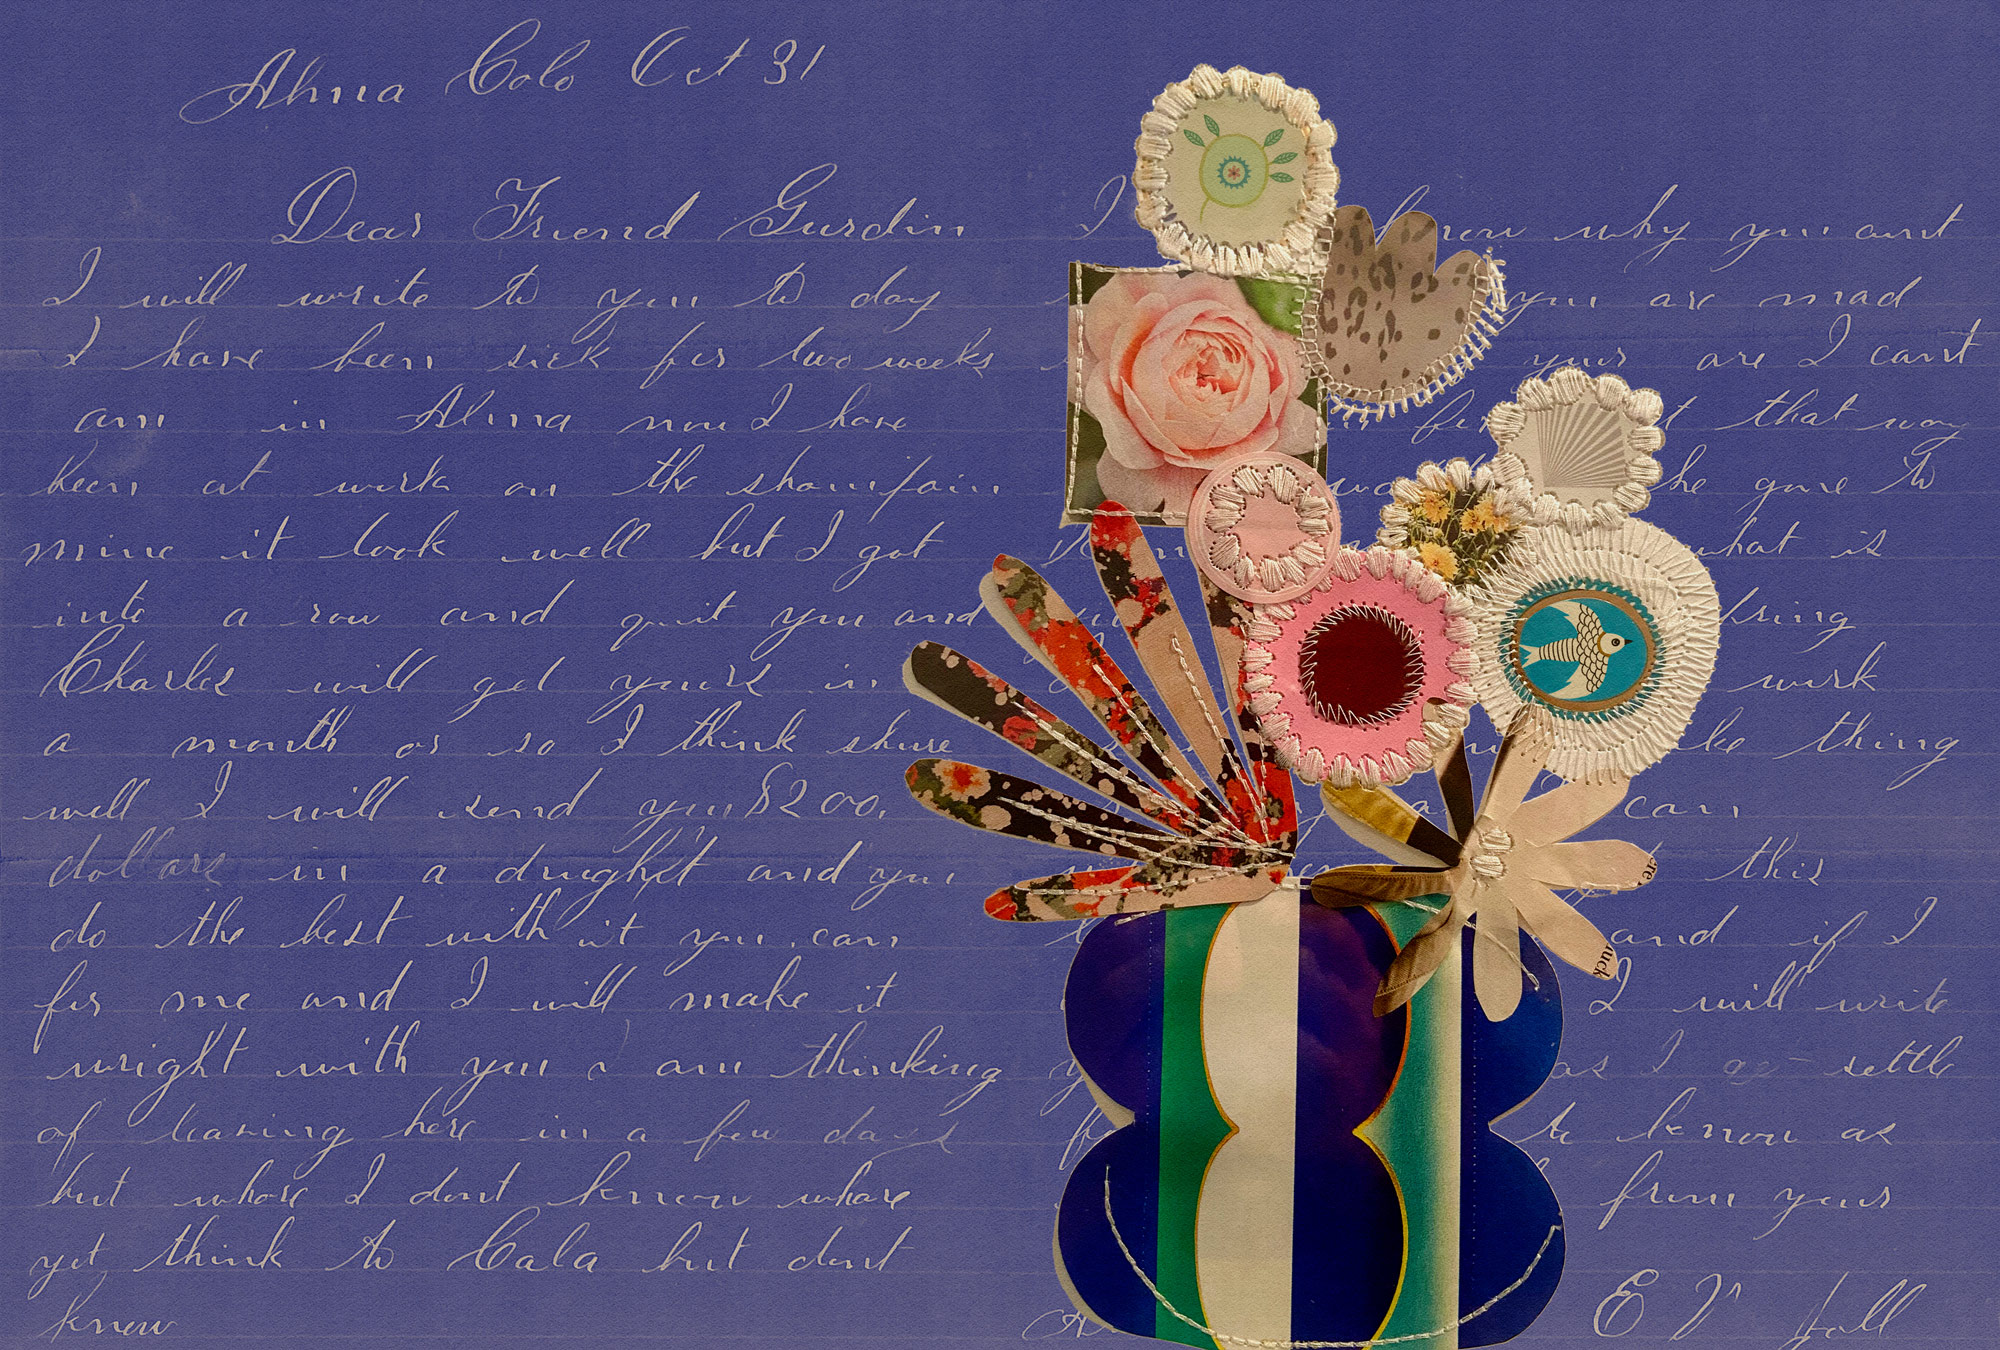 Alma Colo Oct 31
Dear Friend Gurdin
I will write to you to day
I have been sick for two weeks
am in Alma now I have
been at work on the
mine it look well but I got
into a row and quit you and
Charles will get yours in
a month or so I think shure
well I will send you $200.
dollars in a drught and you
do the best with it you can
for me and I will make it
wright with you I am thinking
of leaving here in a few days
but whare I dont know whare
yet think to Cala but dont
know
I know why you aint
you are mad
yours are I cant
that way
he gone to
what is
bring
work
like thing
can
this
and if I
I will write
as I settle
to know as
from yours
E V Hall
uck